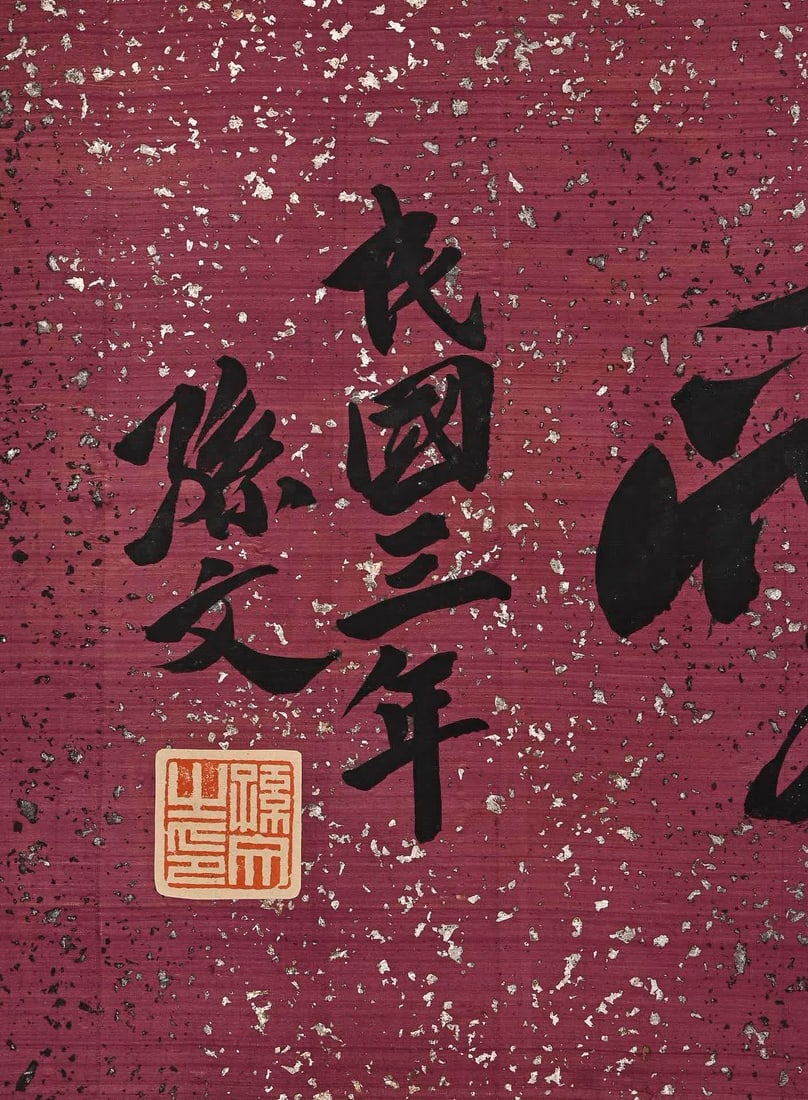 民國三年
孫文
孫文之印